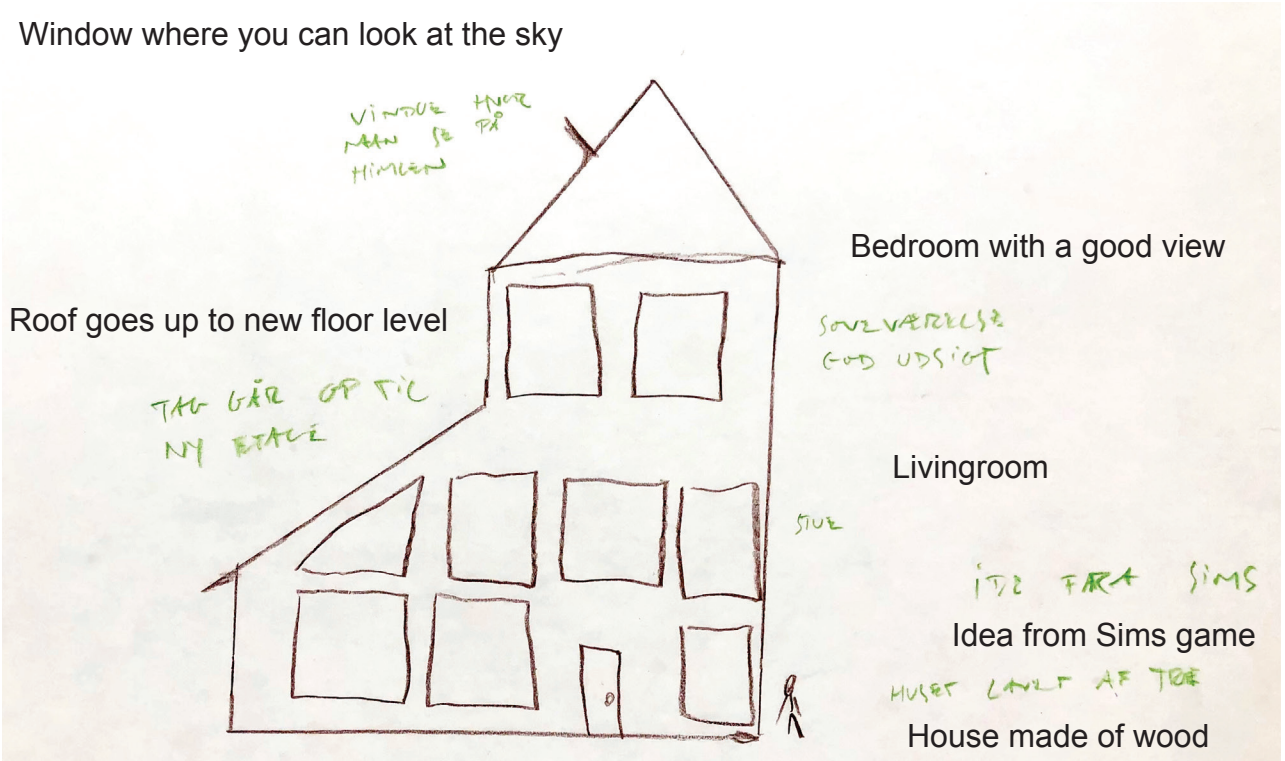 Window where you can look at the sky
VINDUE HVOR
MAN SE PÅ
HIMLEN
Bedroom with a good view
SOVEVÆRELSE
GOD UDSIGT
Roof goes up to new floor level
TAG GÅR OP TIL
NY ETAGE
Livingroom
STUE
IDE FRA SIMS
Idea from Sims game
HUSET LAVET AF TRÆ
House made of wood